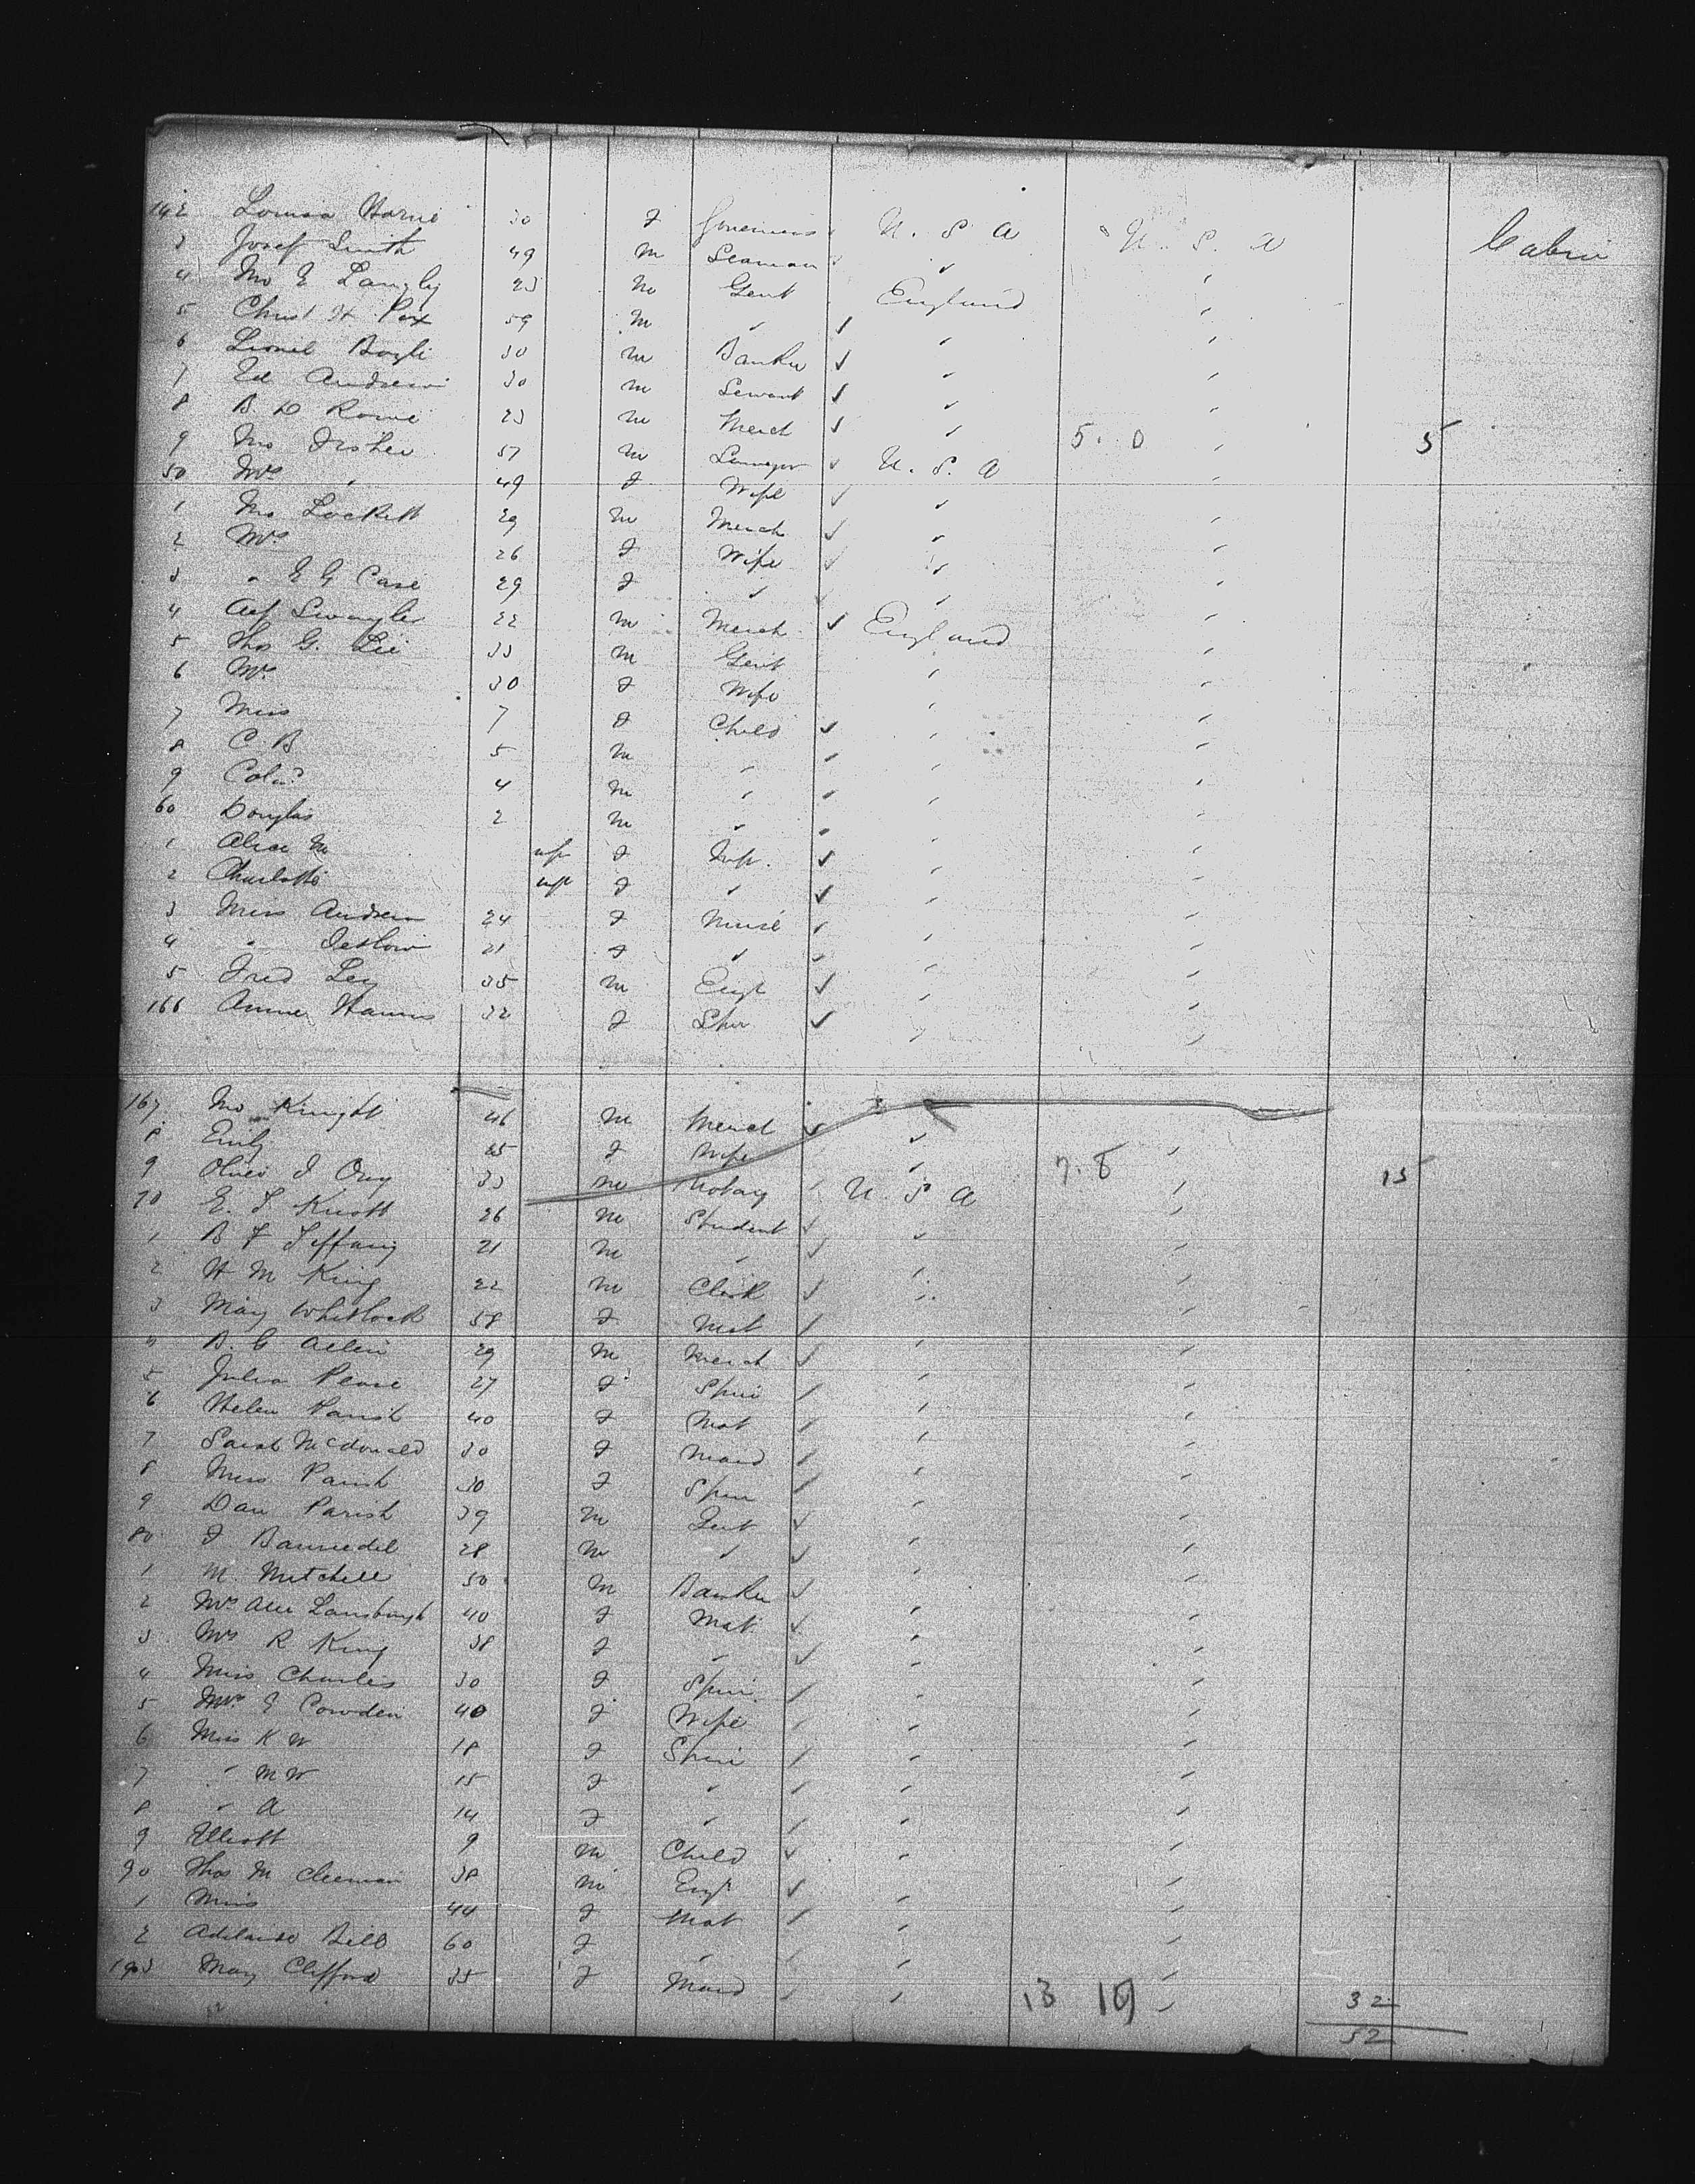 142 Louisa 30 F Governess U. S. A U. S. A Cabin
3 Josef Smith 49 M Seaman ✓
4 Jno E Langley 23 M Gent England
5 Christ H Pix 59 M ✓
6 Lionel 30 M Banker ✓
7 Ed Andrews 30 M Servant ✓
8 B. D Rowe 23 M Merch ✓ 5. 0 5
9 Jno Fisher 57 M ✓ U. S. A
50 Mrs " 49 F Wife
1 Jno Lockett 29 M Merch ✓
2 Mrs 26 F Wife
3 " E G Case 29 F "
4 Alf 22 M Merch ✓ England
5 Thos G. Lee 33 M Gent
6 Mrs 30 F Wife
7 Miss 7 F Child ✓
8 C. B 5 M "
9 4 M "
60 Douglas 2 M "
1 Alice M inf F Inf. ✓
2 Charlotte inf F " ✓
3 Miss Andrew 24 F Nurse
4 " 21 F "
5 Fred Ley 35 M Engr ✓
166 Annie Harris 32 F Spin ✓
167 Jno Knight 46 M Merch ✓
8 Emily F Wife 7. 8 15
9 33 M Notary U S A
70 E. S. Knott 26 M Student ✓
1 B F Tiffany 21 M " ✓
2 H M King 22 M Clerk ✓
3 Mary Whitlock 58 F Mat
4 B. C Allen 29 M Merch ✓
5 Julia Pease 27 F Spin
6 Helen Parish 40 F Mat
7 Sarah McDonald 30 F Maid
8 Miss Parish 30 F Spin
9 Dan Parish 39 M Gent ✓
80 F 28 M " ✓
1 M. Mitchell 50 M Banker ✓
2 Mrs Lansburgh 40 F Mat. ✓
3 Mrs R King 38 F " ✓
4 Miss Charles 30 F Spin
5 Mrs E Cowden 40 F Wife
6 Miss K W 18 F Spin
7 " M W 15 F "
8 " A 14 F "
9 Elliott 9 M Child ✓
90 Thos M Cleeman 38 M Engr ✓
1 44 F Mat
2 Adelaide Bill 60 F "
193 Mary Clifford 35 F Maid 13 19 32
52